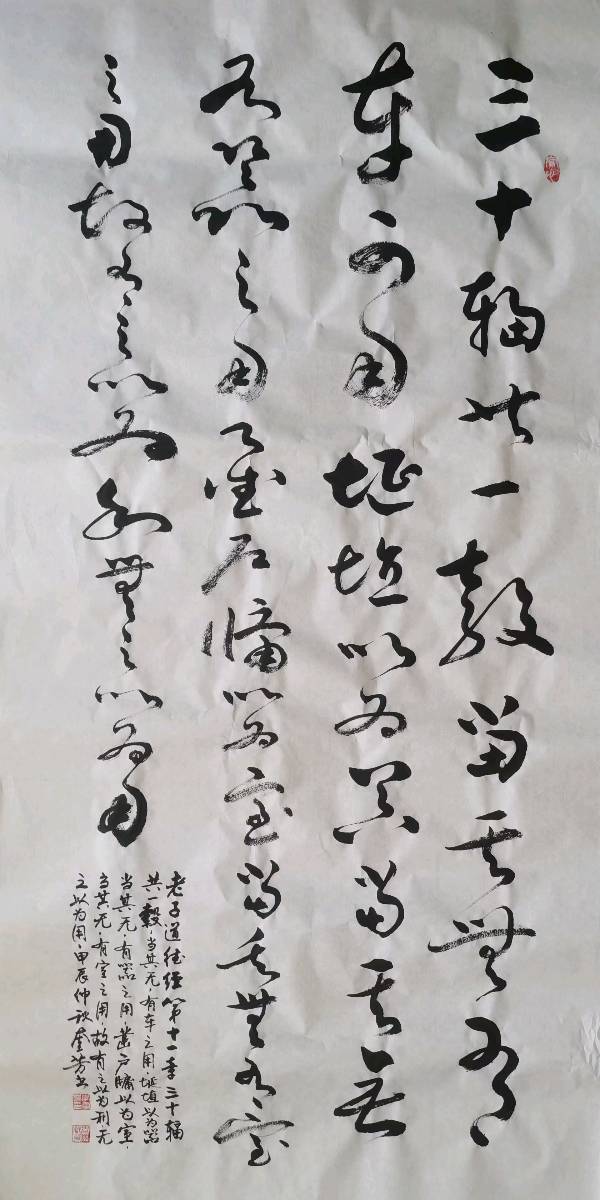 三十辐共一毂当其无有
车之用埏埴以为器当其无
有器之用凿户牖以为室当其無有室
之用故有之以为利無之以为用
老子道德经第十一章三十辐
共一毂，当其无，有车之用，埏埴以为器
当其无，有器之用，凿户牖以为室，
当其无，有室之用，故有之以为利无
之以为用，甲辰仲秋奎芳书